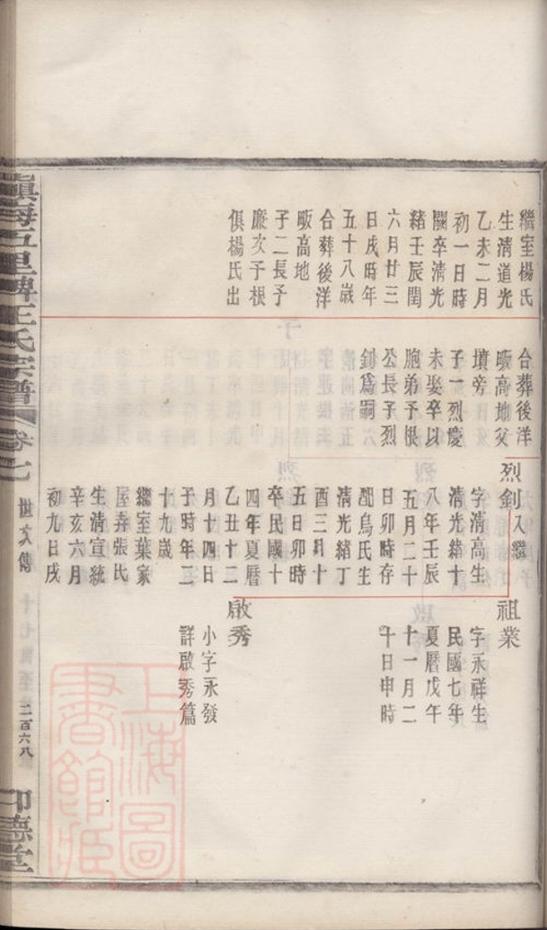 繼室楊氏
生清道光
乙未二月
初一日時
闕卒清光
緒壬辰閏
六月廿三
日戌時年
五十八歲
合葬後洋
畈高地
子二長予
廉次予根
俱楊氏出
合葬後洋
畈高地父
墳旁
子一烈慶
未娶卒以
胞弟予根
公長子烈
釗爲嗣
烈釗 入繼
字清高生
清光緒十
八年壬辰
五月二十
日卯時存
配烏氏生
清光緒丁
酉三月十
五日卯時
卒民國十
四年夏曆
乙丑十二
月十四日
子時年二
十九歲
繼室葉家
屋弄張氏
生清宣統
辛亥六月
初九日戌
祖業
字永祥生
民國七年
夏曆戊午
十一月二
十日申時
啟秀
小字永發
詳啟秀篇
鎮海五里牌王氏宗譜
卷七
世次傳
二百六八
印德堂
上海圖
書館藏